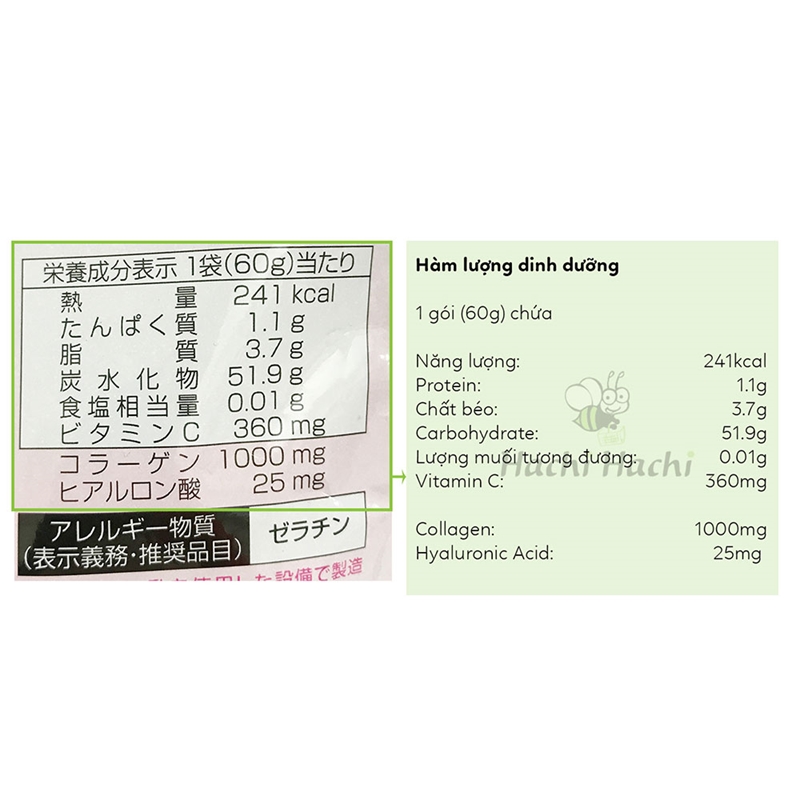 栄養成分表示 1袋(60g)当たり
熱量 241 kcal
たんぱく質 1.1 g
脂質 3.7 g
炭水化物 51.9 g
食塩相当量 0.01 g
ビタミンC 360 mg
コラーゲン 1000 mg
ヒアルロン酸 25 mg
アレルギー物質
(表示義務・推奨品目)
ゼラチン
使用した設備で製造
Hàm lượng dinh dưỡng
1 gói (60g) chứa
Năng lượng: 241kcal
Protein: 1.1g
Chất béo: 3.7g
Carbohydrate: 51.9g
Lượng muối tương đương: 0.01g
Vitamin C: 360mg
Collagen: 1000mg
Hyaluronic Acid: 25mg
Hachi Hachi